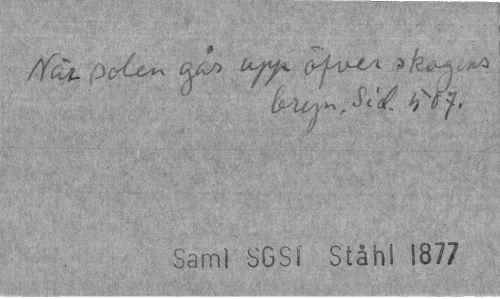 När solen går upp öfver skogens
bryn. Sid. 567.
Saml SGSI Ståhl 1877